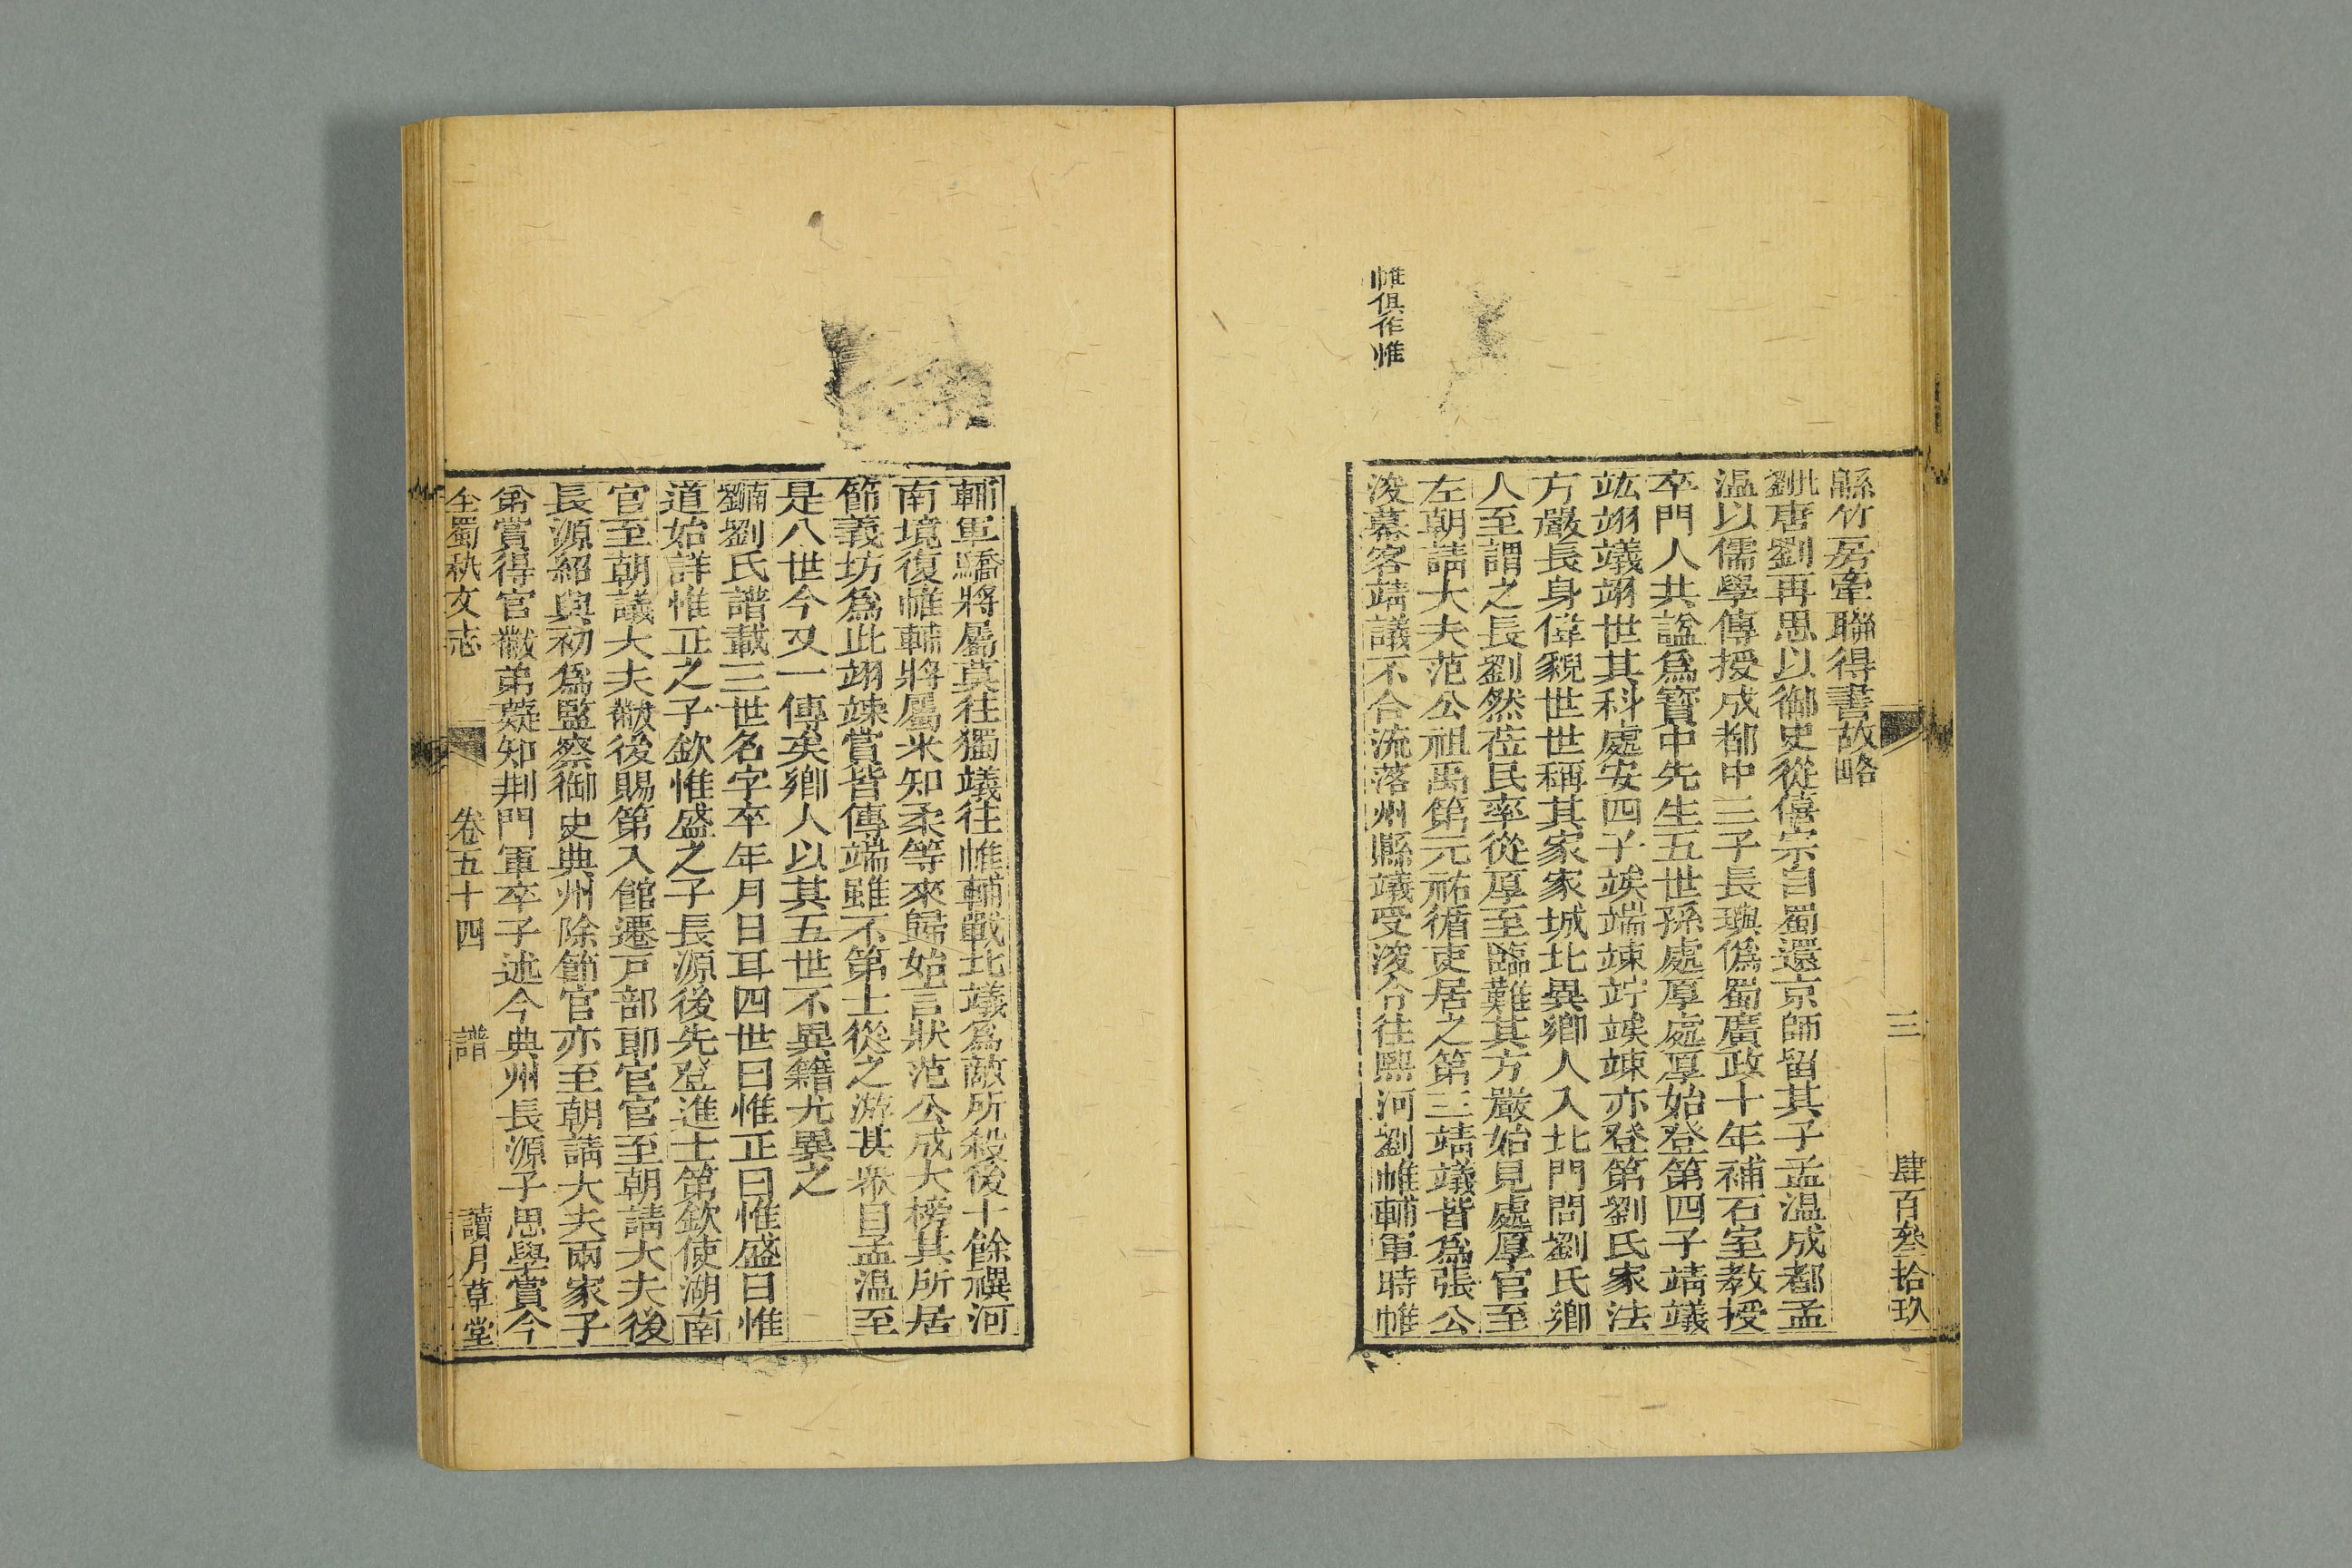 三　肆百叁拾玖
緜竹房牽聯得書故略
劉北唐劉再思以御史從僖宗自蜀還京師留其子孟温成都孟
温以儒學傳授成都中三子長璵僞蜀廣政十年補石室教授
卒門人共諡爲寶中先生五世孫處厚處厚始登第四子靖議
竑翊議翊世其科處安四子竢端竦竚竢竦亦登第劉氏家法
方嚴長身偉貌世世稱其家家城北異鄉人入北門問劉氏鄉
人至謂之長劉然莅民率從厚至臨難其方嚴始見處厚官至
左朝請大夫范公祖禹第元祐循吏居之第三靖議皆爲張公
浚幕客靖議不合流落州縣議受浚令往熙河劉帷輔軍時帷
帷俱作惟
輔軍驕將屬莫往獨議往帷輔戰北議爲敵所殺後十餘禩河
南境復帷輔將屬米知柔等來歸始言狀范公成大榜其所居
節義坊爲此翊竦賞皆傳端雖不第士從之游甚衆自孟温至
是八世今又一傳矣鄉人以其五世不異籍尤異之
劉南劉氏譜載三世名字卒年月日耳四世曰惟正曰惟盛曰惟
道始詳惟正之子欽惟盛之子長源後先登進士第欽使湖南
官至朝議大夫黻後賜第入館遷戸部郎官官至朝請大夫後
長源紹興初爲監察御史典州除節官亦至朝請大夫兩家子
弟賞得官黻弟薿知荆門軍卒子述今典州長源子思學賞今
全蜀秇文志　卷五十四　譜　讀月草堂